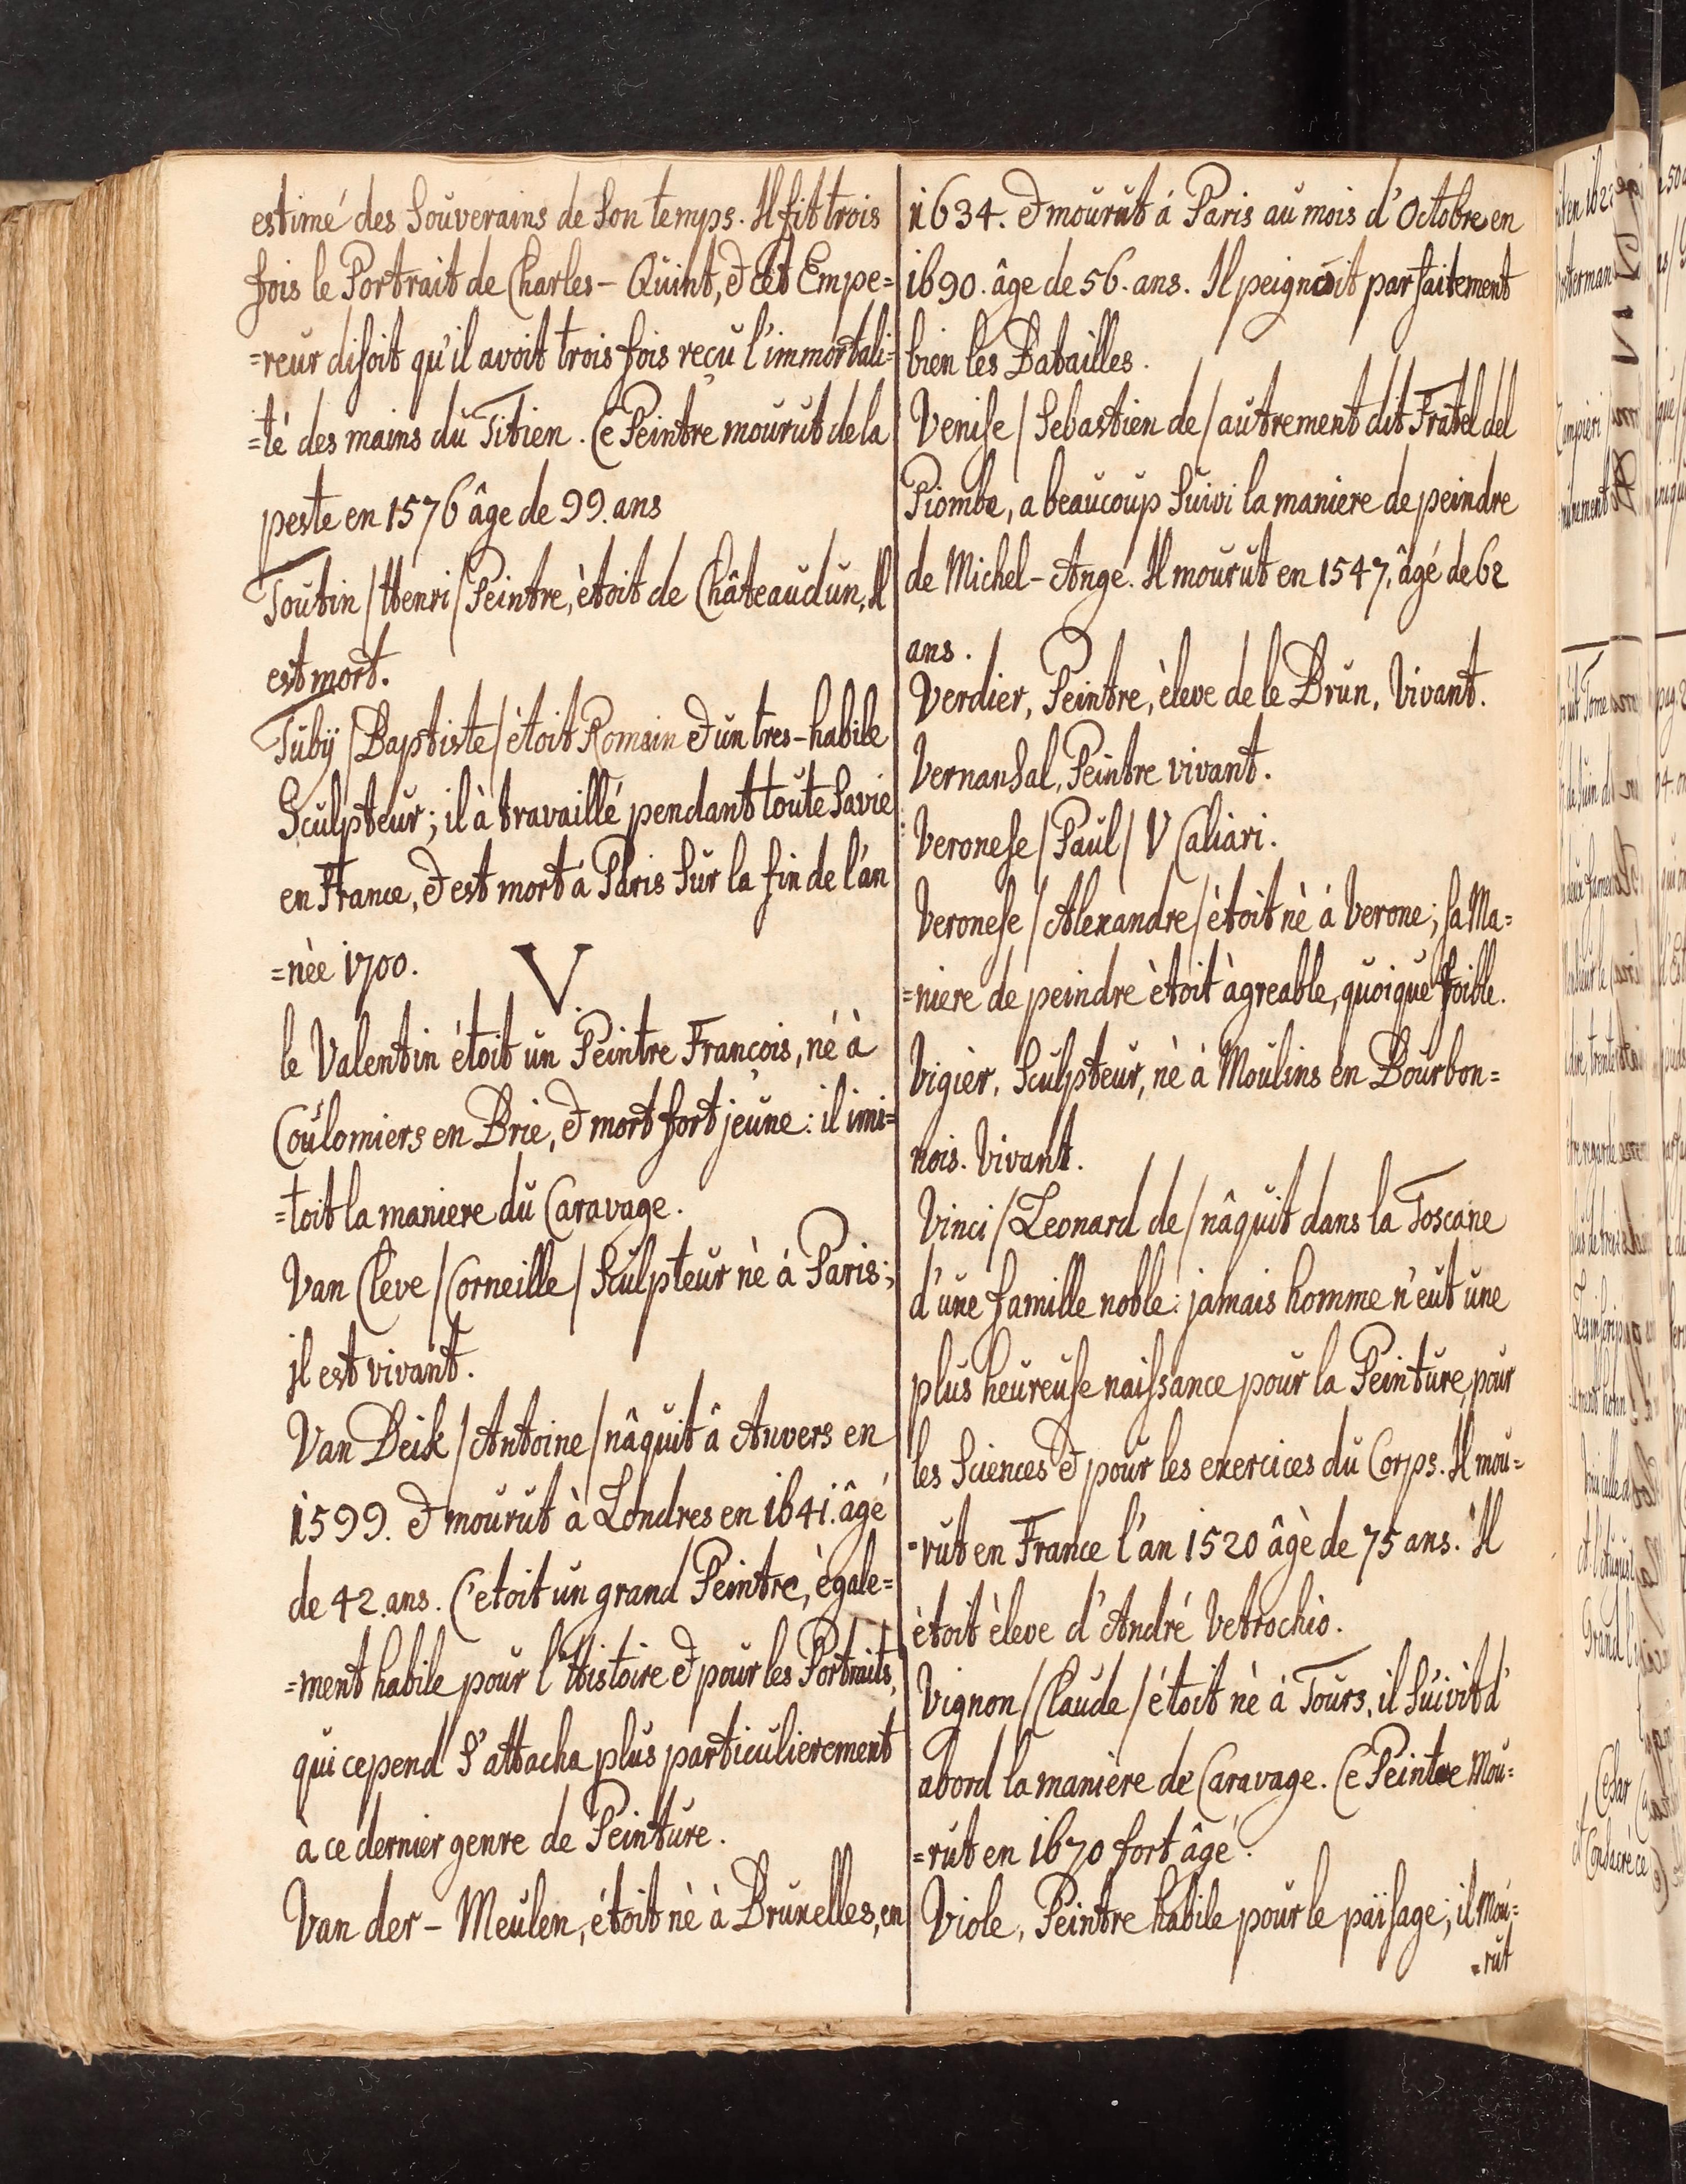 estimé des Souverains de Son temps. Il fit trois
fois le Portrait de Charles - Quint, & cet Empe=
=reur disoit qu'il avoit trois fois reçu l'immortali=
=té des mains du Titien. Ce Peintre mourut de la
peste en 1576 âge de 99. ans
Toutin / Henri / Peintre, ètoit de Châteaudun, Il
est mort.
Tubÿ / Baptiste / ètoit Romain & un tres-habile
Sculpteur; il à travaillé pendant toute Savie
en France, & est mort á Paris Sur la fin de l'an
=nèe 1700.
V
le Valentin étoit un Peintre François, né à
Coulomiers en Brie, & mort fort jeune: il imi=
=toit la maniere du Caravage.
Van Cleve / Corneille / Sculpteur nè á Paris;
il est vivant.
Van Deik / Antoine / nâquit â Anvers en
1599. & mourut à Londres en 1641. âgé
de 42. ans. C'etoit un grand Peintre, ègale=
=ment habile pour l'Histoire & pour les Portraits,
qui cepend S'attacha plus particulierement
à ce dernier genre de Peinture.
Van der - Meulen, étoit nè à Bruxelles, en
1634. & mourut á Paris au mois d'Octobre en
1690. âge de 56. ans. Il peignoit parfaitement
bien les Batailles.
Venise / Sebastien de / autrement dit Fratel del
Piombe, a beaucoup Suivi la maniere de peindre
de Michel-Ange. Il mourut en 1547, âgé de 62
ans.
Verdier, Peintre, èleve de le Brun, Vivant.
Vernansal, Peintre vivant.
Veronese / Paul / V Caliari.
Veronese / Alexandre / ètoit nè á Verone; sa Ma=
=niere de peindre ètoit àgreable, quoique foible.
Vigièr, Sculpteur, nè à Moulins en Bourbon=
nois. Vivant.
Vinci / Leonard de / nâquit dans la Toscane
d'une famille noble: jamais homme n'eut une
plus heureuse naissance pour la Peinture, pour
les Sciences & pour les exercices du Corps. Il mou=
=rut en France l'an 1520 âgè de 75 ans. Il
ètoit èleve d'André Vetrochio.
Vignon / Claude / étoit nè á Tours, il Suivit d'
abord la manière de Caravage. Ce Peintre Mou=
=rut en 1670 fort âgé.
Viole, Peintre habile pour le païsage; il Mou=
=rut